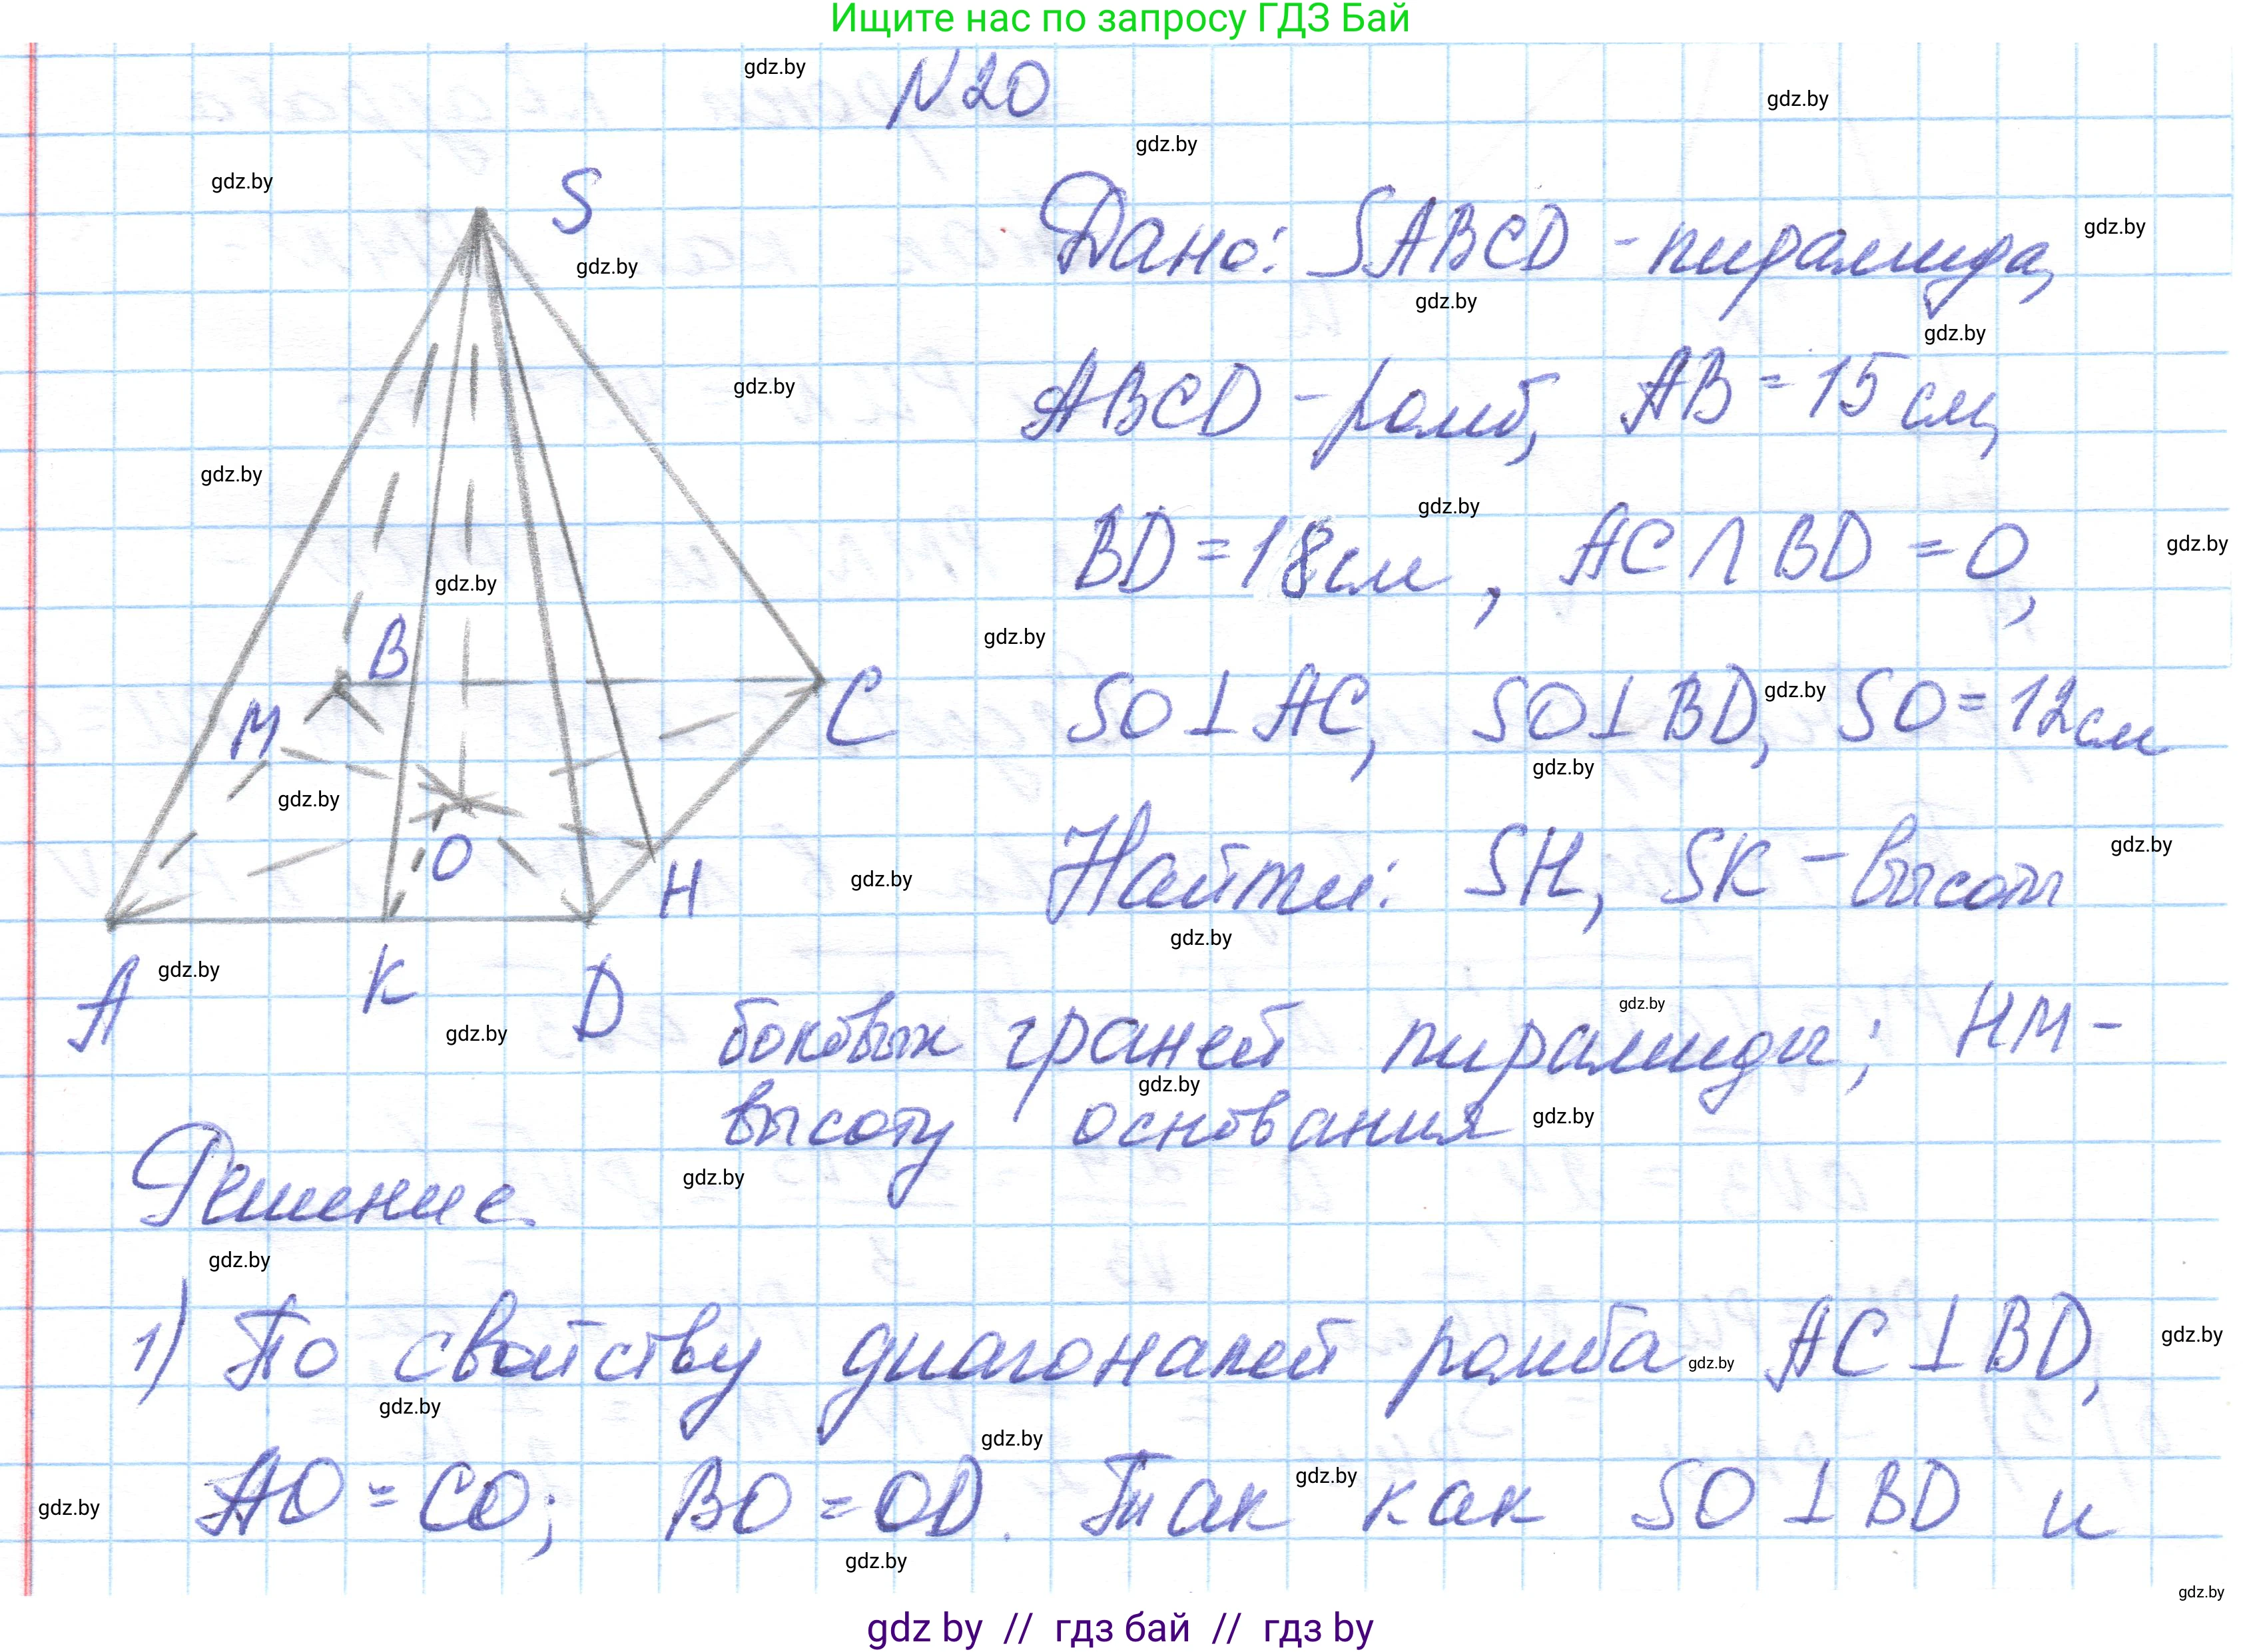 Ищите нас по запросу ГДЗ Бай
gdz.by
N20
gdz.by
gdz.by
gdz.by
S
gdz.by
Дано: SABCD - пирамида,
gdz.by
gdz.by
gdz.by
gdz.by
ABCD - ромб, AB = 15 см,
gdz.by
gdz.by
BD = 18 см, AC ∩ BD = O,
gdz.by
gdz.by
gdz.by
B
M
C
SO ⊥ AC, SO ⊥ BD, SO = 12 см
gdz.by
gdz.by
gdz.by
O
H
Найти: SH, SK - высоты
gdz.by
gdz.by
gdz.by
A
K
D
gdz.by
gdz.by
боковых граней пирамиды; HM -
gdz.by
gdz.by
высоту основания
gdz.by
gdz.by
Решение.
gdz.by
1) По свойству диагоналей ромба AC ⊥ BD,
gdz.by
gdz.by
gdz.by
gdz.by
AO = CO; BO = OD. Так как SO ⊥ BD и
gdz.by
gdz.by
gdz.by
gdz.by
gdz by // гдз бай // гдз by